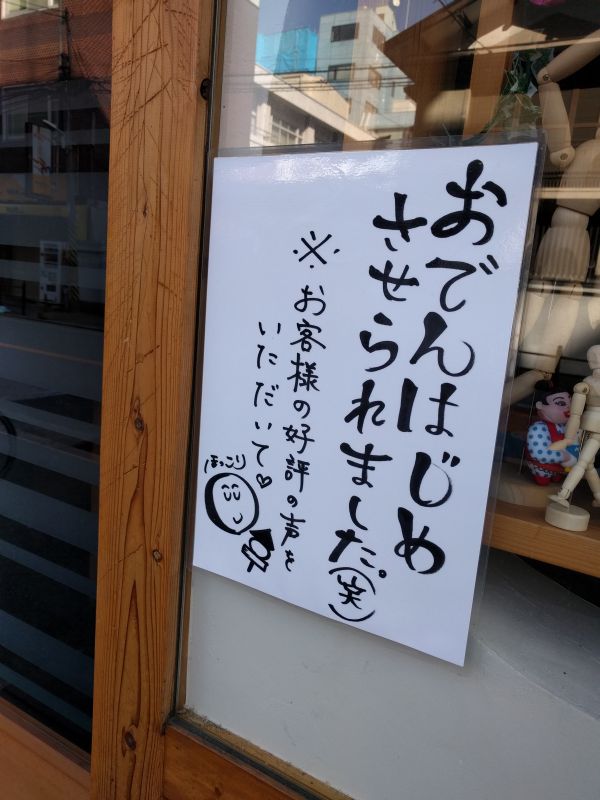 おでんはじめ
させられました。(笑)
※お客様の好評の声を
いただいて♡
ほっこり